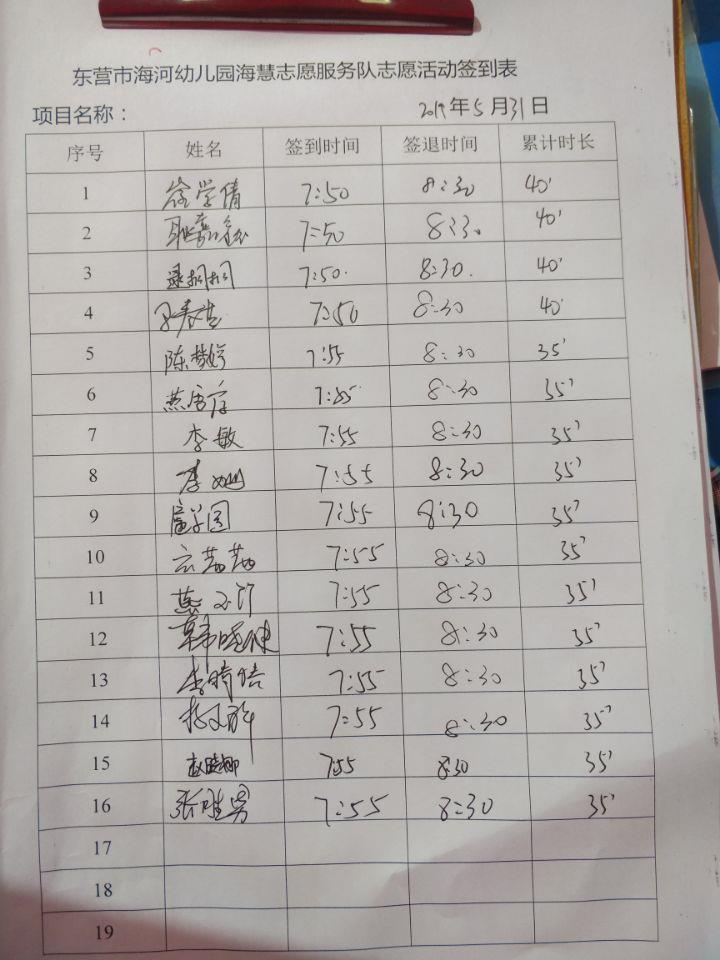 东营市海河幼儿园海慧志愿服务队志愿活动签到表
项目名称： 2019年5月31日
序号 姓名 签到时间 签退时间 累计时长
1 徐学倩 7:50 8:30 40'
2 7:50 8:30 40'
3 7:50 8:30 40'
4 7:50 8:30 40'
5 陈梦婷 7:55 8:30 35'
6 7:55 8:30 35'
7 李敏 7:55 8:30 35'
8 李姗 7:55 8:30 35'
9 7:55 8:30 35'
10 7:55 8:30 35'
11 7:55 8:30 35'
12 7:55 8:30 35'
13 李晴倍 7:55 8:30 35'
14 7:55 8:30 35'
15 7:55 8:30 35'
16 7:55 8:30 35'
17
18
19